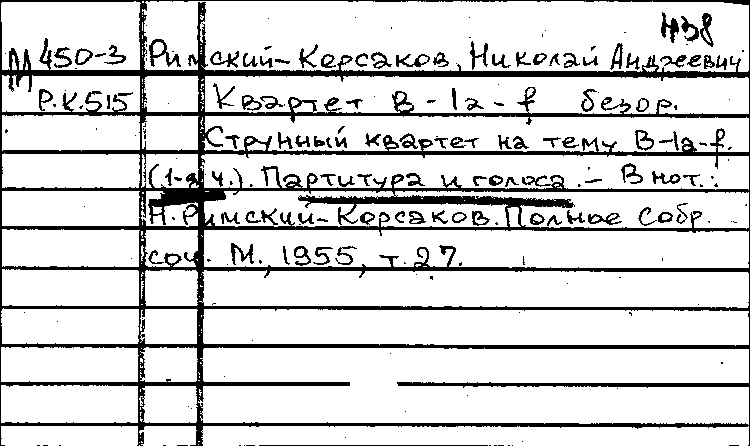 М 450-3 Римский-Корсаков, Николай Андреевич
Р.К.515 Квартет B-la-f
Струнный квартет на тему B-la-f.
(1-я ч.). Партитура и голоса. - В нот.:
Н. Римский-Корсаков. Полное собр.
соч. М., 1955, т. 27.